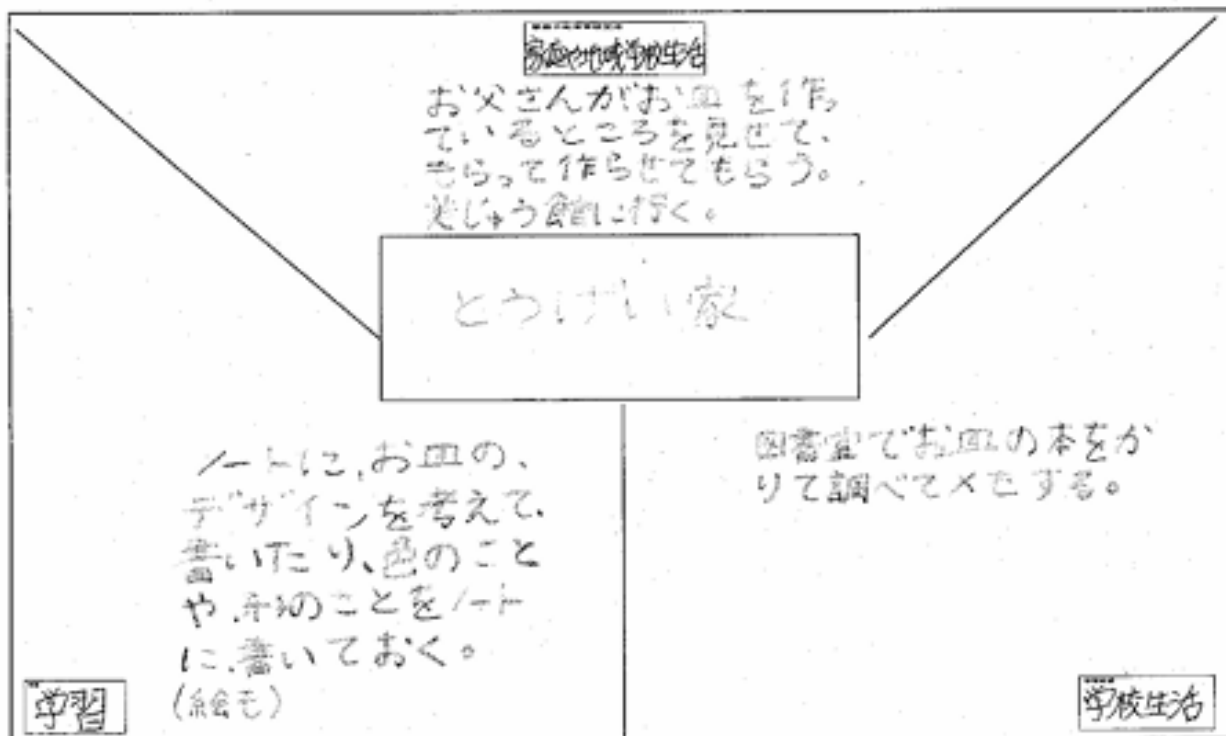 家庭や地域学校生活
お父さんがお皿を作っ
ているところを見せて、
もらって作らせてもらう。
びじゅつ館に行く。
とうげい家
ノートに、お皿の、
デザインを考えて、
書いたり、色のこと
や、形のことをノート
に、書いておく。
(絵も)
学習
図書室でお皿の本をか
りて調べてメモする。
学校生活